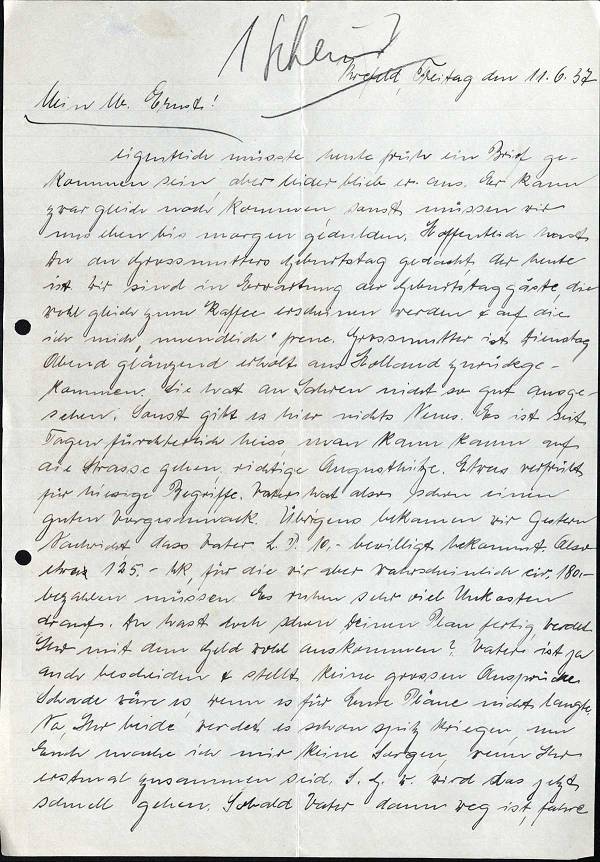 Krefeld, Freitag den 11.6.37
Mein lb. Ernst!
eigentlich müsste heute früh ein Brief ge-
kommen sein aber leider blieb er aus. Er kann
zwar gleich noch kommen sonst müssen wir
uns eben bis morgen gedulden. Hoffentlich hast
Du an Grossmutters Geburtstag gedacht, der heute
ist. Wir sind in Erwartung der Geburtstaggäste, die
wohl gleich zum Kaffee erscheinen werden & auf die
ich mich "unendlich" freue. Grossmutter ist Dienstag
Abend glänzend erholt aus Holland zurückge-
kommen. Sie hat an Jahren nicht so gut ausge-
sehen. Sonst gibt es hier nichts Neues. Es ist seit
Tagen fürchterlich heiss, man kann kaum auf
die Strasse gehen, richtige Augusthitze. Etwas verfrüht
für hiesige Begriffe. Vater hat also schon einen
guten Vorgeschmack. Übrigens bekamen wir Gestern
Nachricht dass Vater L. P. 10.- bewilligt bekommt. Also
etwa 125.- Mk, für die wir aber wahrscheinlich cir. 180.-
bezahlen müssen. Es ruhen sehr viel Unkosten
drauf. Du hast doch schon Deinen Plan fertig, werdet
Ihr mit dem Geld wohl auskommen? Vater ist ja
auch bescheiden & stellt keine grossen Ansprüche.
Schade wäre es, wenn es für Eure Pläne nicht langte.
Na, Ihr beide werdet es schon spitz kriegen, um
Euch mache ich mir keine Sorgen, wenn Ihr
erstmal zusammen seid. S. G. w. wird das jetzt
schnell gehen. Sobald Vater dann weg ist, fahre